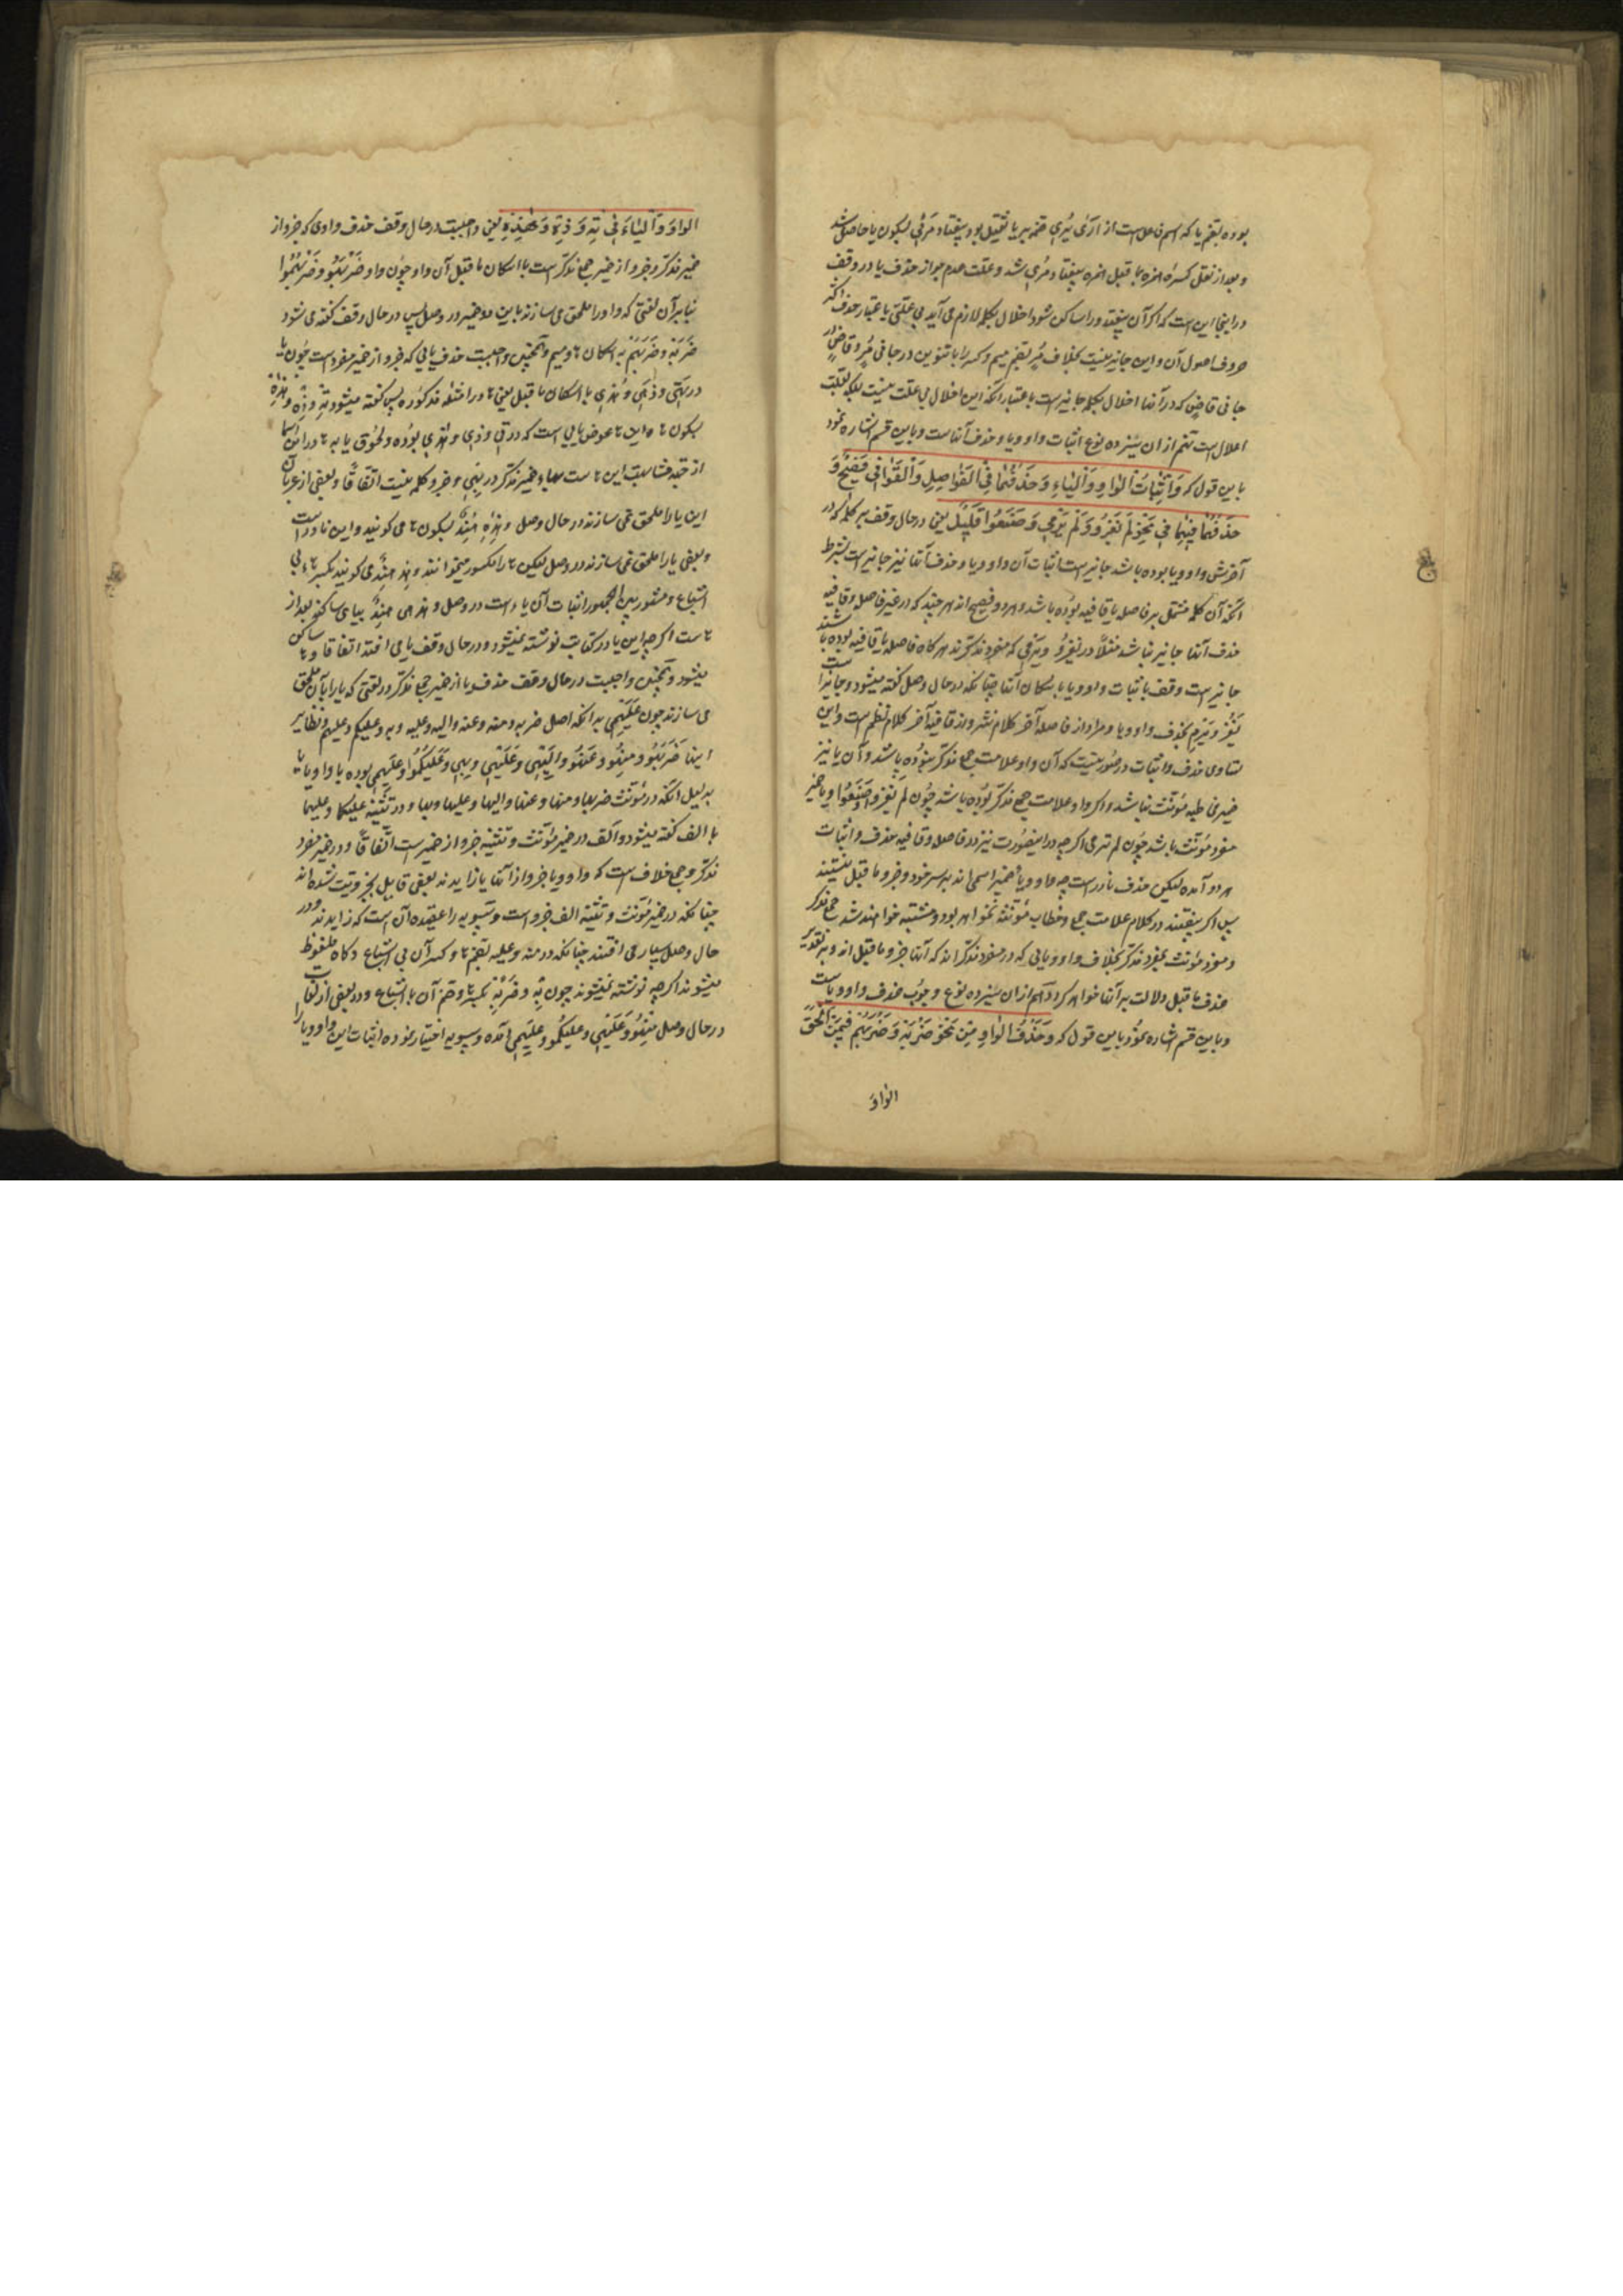 بوده بضم یا که اسم فاعل است از اَرَی یُرِی ضمه بر یا ثقیل بود بیفتاد مُرْئِی بسکون یا حاصل شد
و بعد از نقل کسره همزه بما قبل همزه بیفتاد مُرِی شد و علت عدم جواز حذف یا در وقف
در اینجا این است که اگر آن بیفتد و را ساکن شود اخلال بکلمه لازم می آید بی علتی باعتبار حذف اکثر
حروف اصول آن و این جایز نیست بخلاف مُرٍ بضم میم و کسر را با تنوین در جاءنی مُرٍ و قاضٍ در
جاءنی قاضٍ که در آنها اخلال بکلمه جایز است باعتبار آنکه این اخلال بی علت نیست بلکه بعلت
اعلال است نهم از ان سیزده نوع اثبات واو و یا و حذف آنها است و باین قسم اشاره نمود
باین قول که وَاِثْبَاتُ الْوَاوِ وَالْیَاءِ وَحَذْفُهُمَا فِی الْفَوَاصِلِ وَالْقَوَافِی فَصِیحٌ وَ
حَذْفُهُمَا فِیهِمَا فِی نَحْوِ لَمْ یَغْزُو وَلَمْ یَرْمِی وَصَنَعُوا قَلِیلٌ یعنی در حال وقف بر کلمه که در
آخرش واو و یا بوده باشد جایز است اثبات آن واو و یا و حذف آنها نیز جایز است بشرط
آنکه آن کلمه مشتمل بر فاصله یا قافیه بوده باشد و هر دو فصیح اند هر چند که در غیر فاصله و قافیه
حذف آنها جایز نباشد مثلاً در یَغْزُو و یَرْمِی که مفرد مذکرند هر گاه فاصله یا قافیه بوده باشند
جایز است وقف باثبات واو و یا باسکان آنها چنانکه در حال وصل گفته میشود و جایز است
یَغْزُ و یَرْمِ بحذف واو و یا و مراد از فاصله آخر کلام نثر و از قافیه آخر کلام نظم است و این
تساوی حذف و اثبات در صورتیست که آن واو علامت جمع مذکر نبوده باشد و آن یا نیز
ضمیر مخاطبه مؤنث نباشد و اگر واو علامت جمع مذکر بوده باشد چون لَمْ یَغْزُوا و صَنَعُوا و یا ضمیر
مفرد مؤنث باشد چون لم ترمی اگر چه در اینصورت نیز در فاصله و قافیه حذف و اثبات
هر دو آمده لیکن حذف نادر است چه واو و یا ضمیر اسمی اند بر سر خود و جزو ما قبل نیستند
پس اگر بیفتند در کلام علامت جمع و خطاب مؤنث نخواهد بود و مشتبه خواهند شد جمع مذکر
و مفرد مؤنث بمفرد مذکر بخلاف واو و یایی که در مفرد مذکر اند که آنها جزو ما قبل اند و بر تقدیر
حذف ما قبل دلالت بر آنها خواهد کرد دهم از ان سیزده نوع وجوب حذف واو و یا است
و باین قسم اشاره نمود باین قول که وَحَذْفُ الْوَاوِ مِنْ نَحْوِ ضَرَبَهُ وَضَرَبَهُمْ فِیمَنْ اَلْحَقَ
الواوَ
الواوَ وَالْیَاءَ فِی تِهِ وَذِهِ وَهٰذِهِ یعنی واجبست در حال وقف حذف واوی که جزو از
ضمیر مذکر و جزو از ضمیر جمع مذکر است با اسکان ما قبل آن واو چون واو ضَرَبَهُو و ضَرَبَهُمُوا
بنا بر آن لغتی که واو را ملحق می سازند باین دو ضمیر در وصل پس در حال وقف گفته می شود
ضَرَبَهْ و ضَرَبَهُمْ به اسکان ها و میم و همچنین واجبست حذف یایی که جزو از ضمیر مفرد است چون یا
در تِهِی و ذِهِی و هٰذِهِی با اسکان ما قبل یعنی ها در امثله مذکوره پس گفته میشود تِهْ و ذِهْ و هٰذِهْ
بسکون ها و این ها عوض یایی است که در تی و ذی و هذی بوده و لحوق یا به ها در این اسما
از جهة مشابهت این ها ست بهاء ضمیر مذکر در بِهِی و جزو کلمه نیست اتفاقاً و بعضی از عربان
این یا را ملحق نمی سازند در حال وصل و هٰذِهْ هِنْدٌ بسکون ها می گویند و این نادر است
و بعضی یا را ملحق نمی سازند در وصل لیکن ها را مکسور میخوانند و هذهِ هِنْدٌ می گویند بکسر هاء بی
اشباع و مشهور بین الجمهور اثبات آن یاء است در وصل و هذهی هِنْدٌ بیای ساکنه بعد از
ها ست اگر چه این یا در کتابت نوشته نمیشود و در حال وقف یا می افتد اتفاقا و ها ساکن
میشود و همچنین واجبست در حال وقف حذف یا از ضمیر جمع مذکر در لغتی که یا را بآن ملحق
می سازند چون عَلَیْهِمِی بدانکه اصل ضربه و منه و عنه و الیه و علیه و به و علیکم و علیهم و نظایر
اینها ضَرَبَهُو و مِنْهُو و عَنْهُو و اِلَیْهِی و عَلَیْهِی و بِهِی و عَلَیْکُمُوا و عَلَیْهِمِی بوده با واو و یا
بدلیل آنکه در مؤنث ضربها و منها و عنها و الیها و علیها و بها و در تثنیه علیکما و علیهما
با الف گفته میشود و الف در ضمیر مؤنث و تثنیه جزو از ضمیر است اتفاقاً و در ضمیر مفرد
مذکر و جمع خلاف است که واو و یا جزو از آنها یا زایدند بعضی قایل بجزویت شده اند
چنانکه در ضمیر مؤنث و تثنیه الف جزو است و سیبویه را عقیده آن است که زایدند و در
حال وصل بسیار می افتند چنانکه در منه و علیه بضم ها و کسر آن بی اشباع و گاه ملفوظ
میشوند اگر چه نوشته نمیشوند چون بِهِ و ضَرَبَهُ بکسر ها و ضم آن با اشباع و در بعضی از لغات
در حال وصل مِنْهُو و عَلَیْهِی و عَلَیْکُمُو و عَلَیْهِمِی آمده و سیبویه اختیار نموده اثبات این واو و یا را